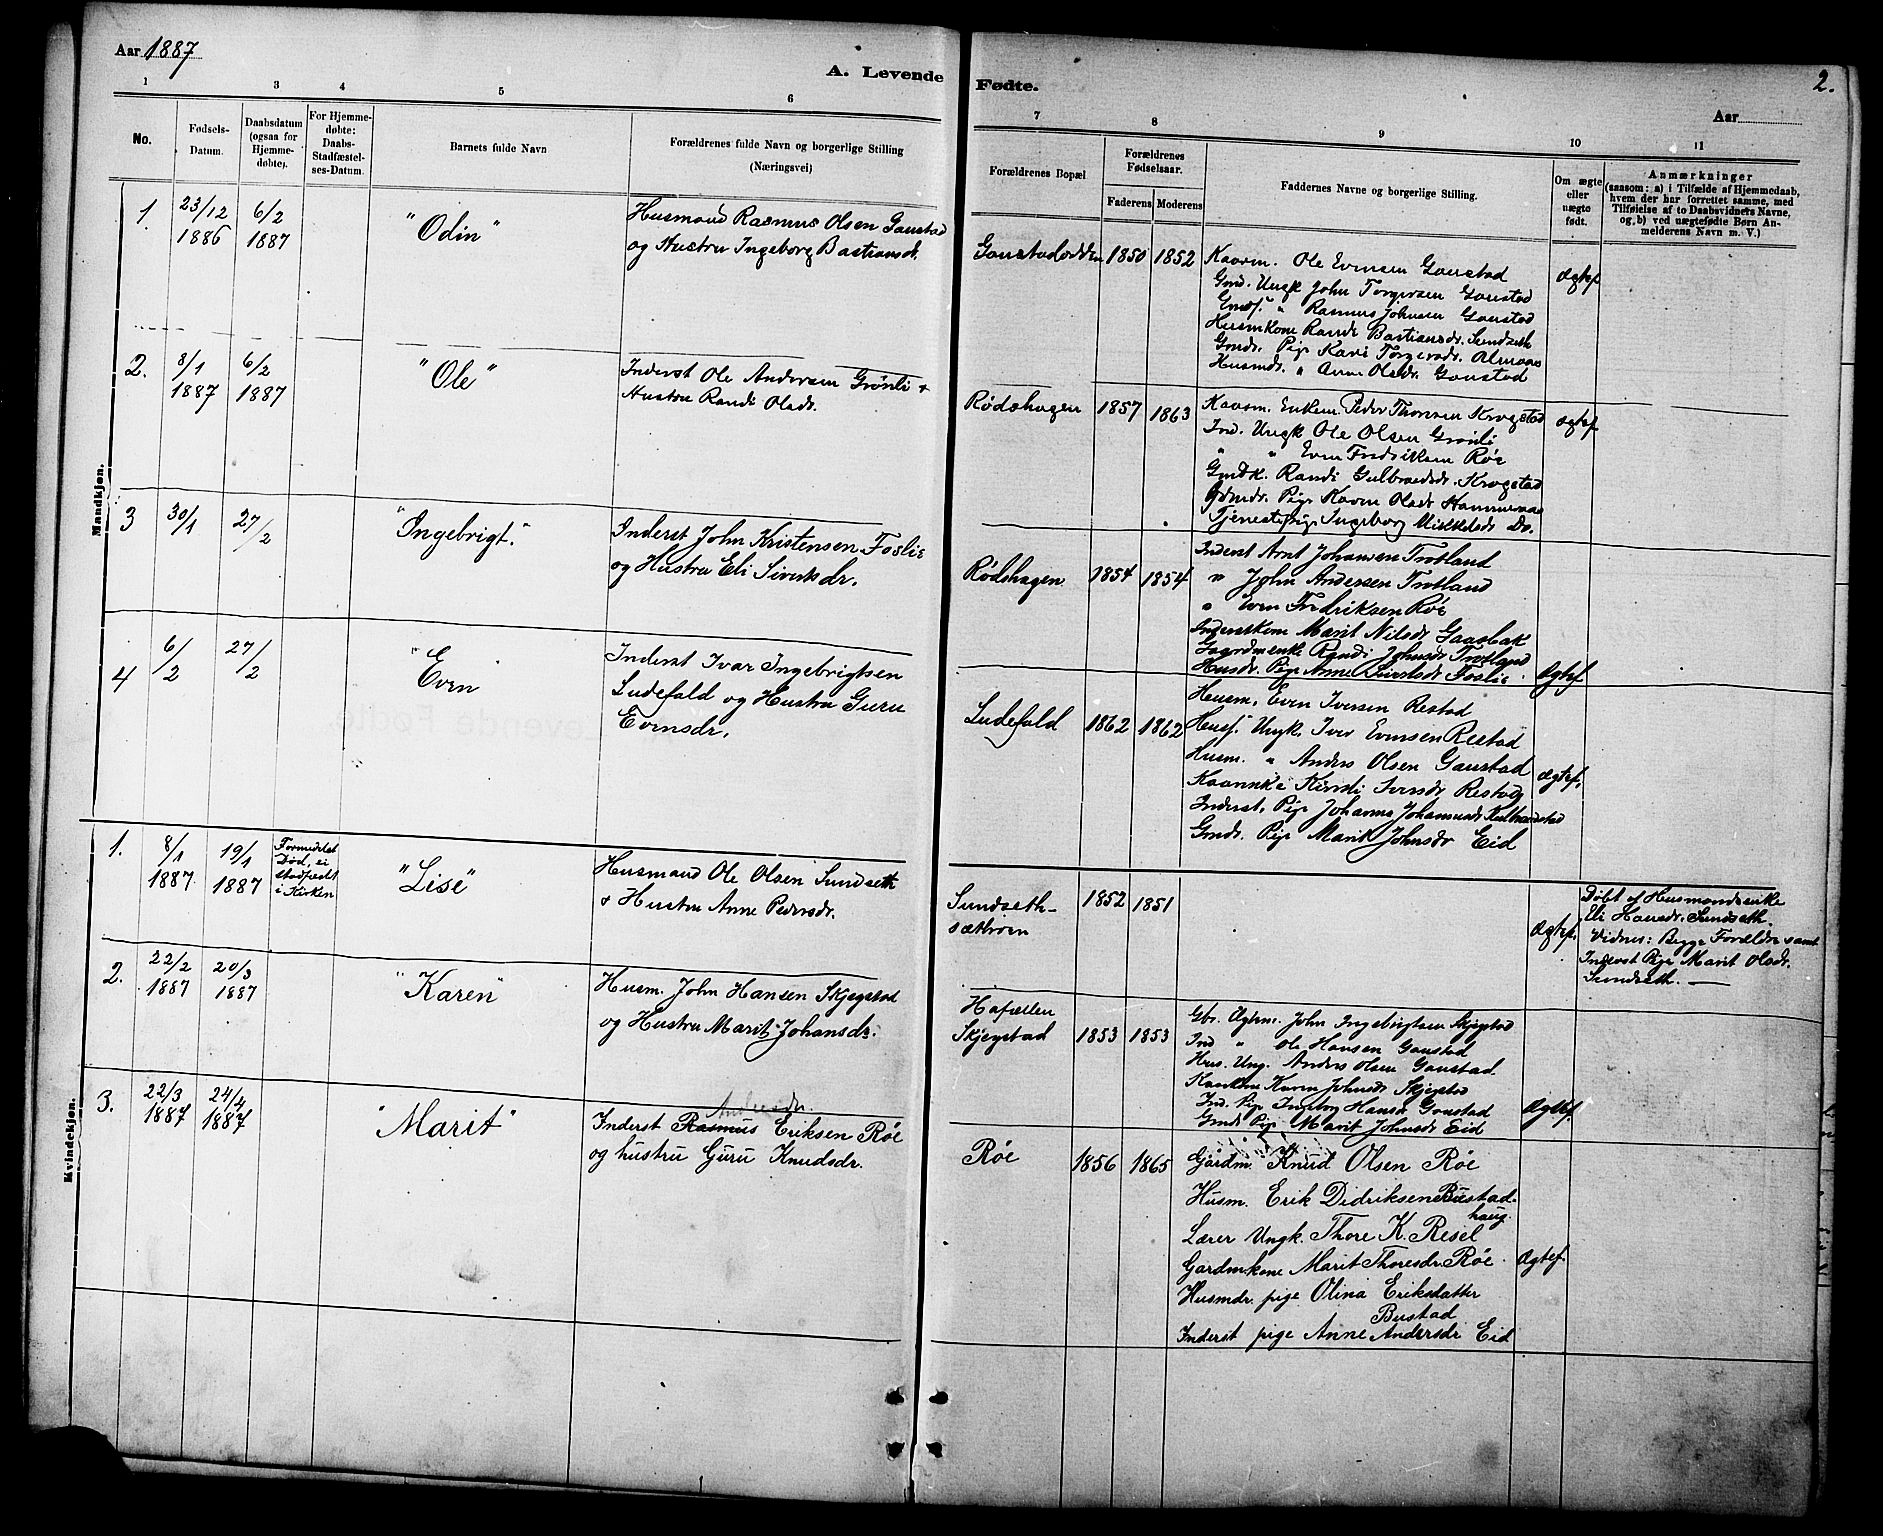 Aar 1887
A. Levende
1 3 4 5 6
No.
Fødsels-
Datum.
Daabsdatum
(ogsaa for
Hjemme-
døbte).
For Hjemme-
døbte:
Daabs-
Stadfæstel-
ses-Datum.
Barnets fulde Navn
Forældrenes fulde Navn og borgerlige Stilling
(Næringsvei)
Mandkjøn.
1. 23/12 1886 6/2 1887 "Odin"
Husmand Rasmus Olsen Gaustad
og Hustru Ingeborg Bastiansd.
2. 8/1 1887 6/2 1887 "Ole"
Inderst Ole Andersen Grønli +
Hustru Randi Olsdr.
3 30/1 27/2 "Ingebrigt."
Inderst John Kristensen Foslie
og Hustru Eli Sivertsdr.
4 6/2 27/2 "Even
Inderst Ivar Ingebrigtsen
Ludefald og Hustru Guru
Evensdr.
Kvindekjøn.
1. 8/1 1887 19/1 1887
Formedelst
Død, ei
stadfæst
i Kirken
"Lise"
Husmand Ole Olsen Sundseth
+ Hustru Anne Pedersdr.
2. 22/2 1887 20/3 1887 "Karen"
Husm. John Hansen Skjegstad
og Hustru Marit Johansdr.
3. 22/3 1887 24/4 1887 "Marit"
Inderst Rasmus Eriksen Røe
og hustru Guru Knudsdr.
Fødte.
2.
Aar
7 8 9 10 11
Forældrenes Bopæl
Forældrenes
Fødselsaar.
Faderens Moderens
Faddernes Navne og borgerlige Stilling.
Om ægte
eller
uægte
født.
Anmærkninger
(saasom: a) i Tilfælde af Hjemmedaab,
hvem der har forrettet samme, med
Tilføielse af to Daabsvidners Navne,
og, b) ved uægtefødte Børn An-
melderens Navn m. V.)
Gaustadodden 1850 1852
Kaarm. Ole Evensen Gaustad
Gmd. Ungk John Torgersen Gaustad
" Rasmus Johnsen Gaustad
Husmkone Randi Bastiansdr. Sundseth
Gmdr. Pige Kari Torgersdr. Almaas
Husmdr. " Anne Olsdr. Gaustad
Ægtef.
Rødshagen 1857 1863
Kaarm. Enkem. Peder Thomsen Krogstad
Ind. Ungk Ole Olsen Grønli
" " Even Fredriksen Røe
Gmdk. Randi Gulbrandsdr. Krogstad
Pige Karen Olsdr Hammeraas
Tjenestepige Ingeborg Mikkelsdr Do.
Ægtef.
Rødshagen 1854 1854
Inderst Arnt Johansen Trotland
" John Andersen Trotland
" Even Fredriksen Røe
Inderstkone Marit Nilsdr Gaasbak
Gaardmenke Randi Johnsdr Trotland
Husdr. Pige Anne Sivertsdr Foslie.
Ægtef.
Ludefald 1862 1862
Husm. Even Iversen Restad
Husf. Ungk. Iver Evensen Restad
Husm. " Anders Olsen Gaustad
Kirsti
Inderst. Pige Johanna
Gmdr. Pige Marit Johnsdr Eid
Ægtef.
Sundseth-
sætrøen
1852 1851
Ægtef.
Døbt af Husmandsenke
Eli Hansdr. Sundseth.
Vidner: Begge Forældre samt
Inderst Pige Marit Olsdr.
Sundseth.
Hafællen
Skjegstad 1853 1853
Gbr. Ægtem. John Ingebrigtsen Skjegstad
Ind " Ole Hansen Gaustad
Hus. Ung. Anders Olsen Gaustad.
Karen Johnsdr Skjegstad
Ind. Pige Ingeborg Hansd Gaustad
Gmdr Pige Marit Johnsdr Eid
Ægtef.
Røe 1856 1865
Gårdm. Knud Olsen Røe
Husm. Erik Didriksen Bustad-
haug.
Lærer Ungk. Thore K. Resel
Gardmkone Marit Thoresdr. Røe
Husmdr. pige Olina Eriksdatter
Bustad
Inderst pige Anne Andersdr Eid
Ægtef.